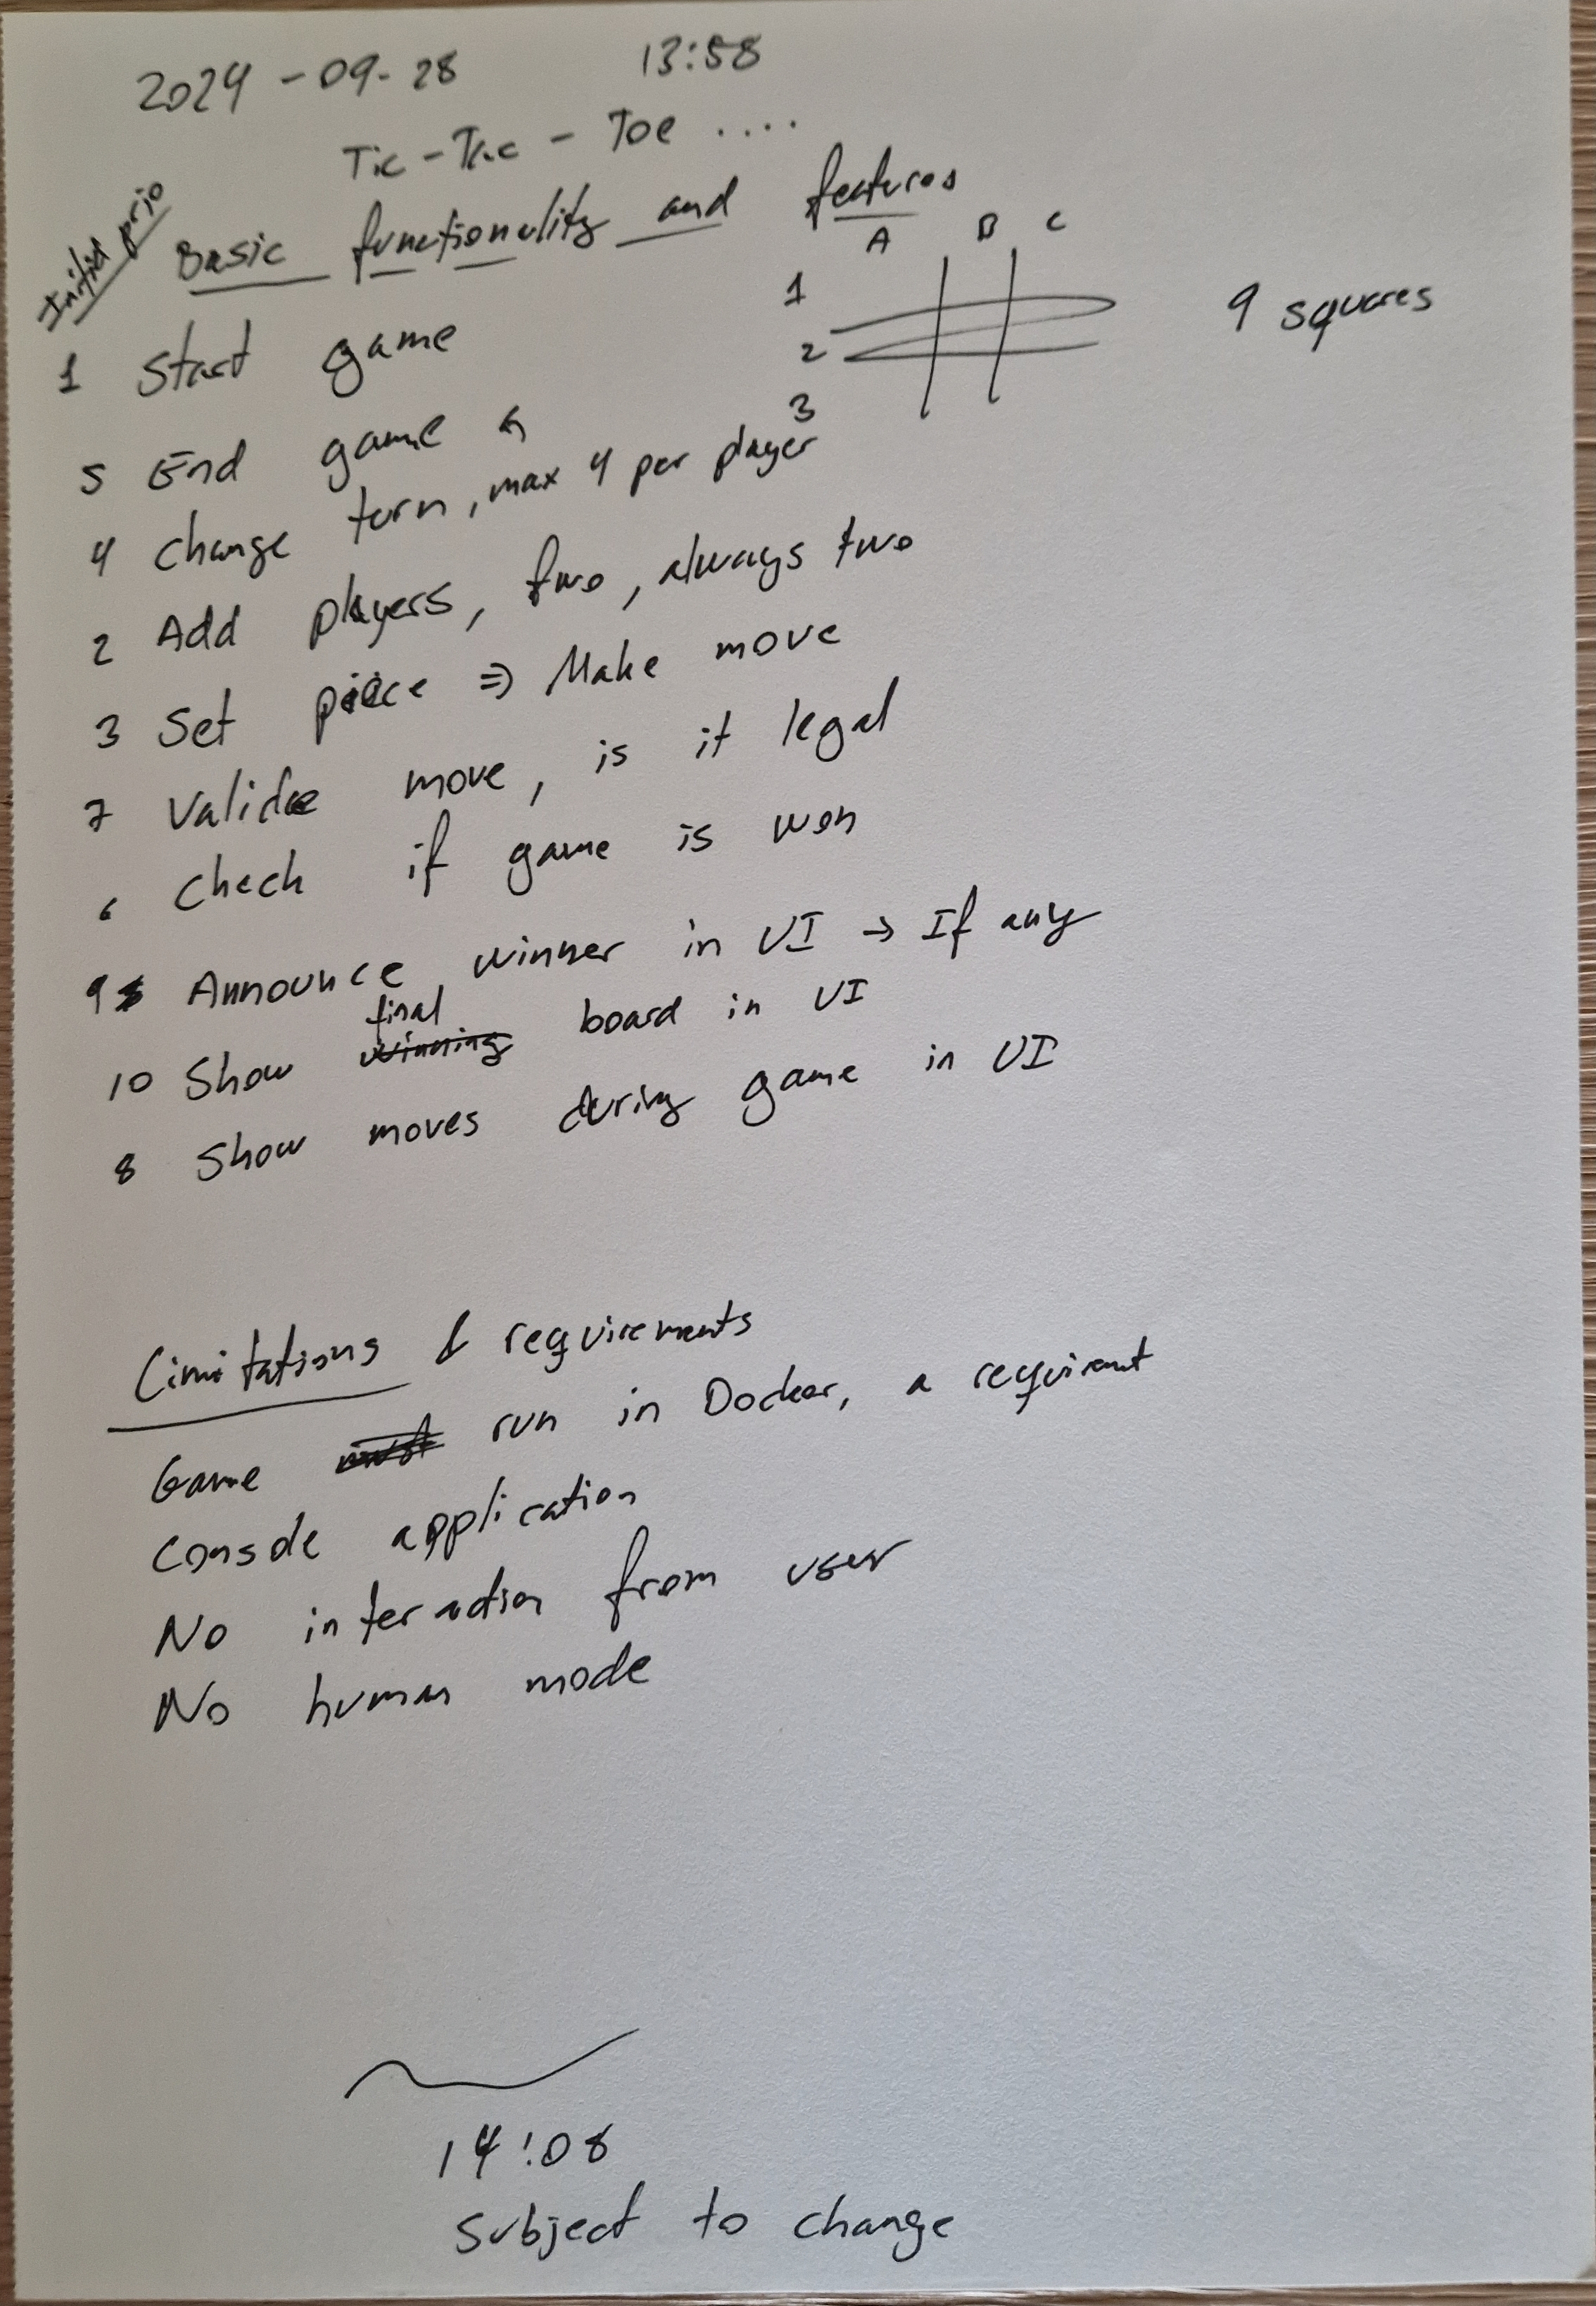 2024-09-28 13:58
Tic-Tac-Toe ....
Initial prio
Basic functionality and features
A B C
1
2
3
9 squares
1 Start game
5 End game
4 Change turn, max 4 per player
2 Add players, two, always two
3 Set piece => Make move
7 Valide move, is it legal
6 Check if game is won
9 Announce winner in UI → If any
final
10 Show winning board in UI
8 Show moves during game in UI
Limitations & requirements
Game must run in Docker, a requirement
Console application
No interaction from user
No human mode
14:08
Subject to change